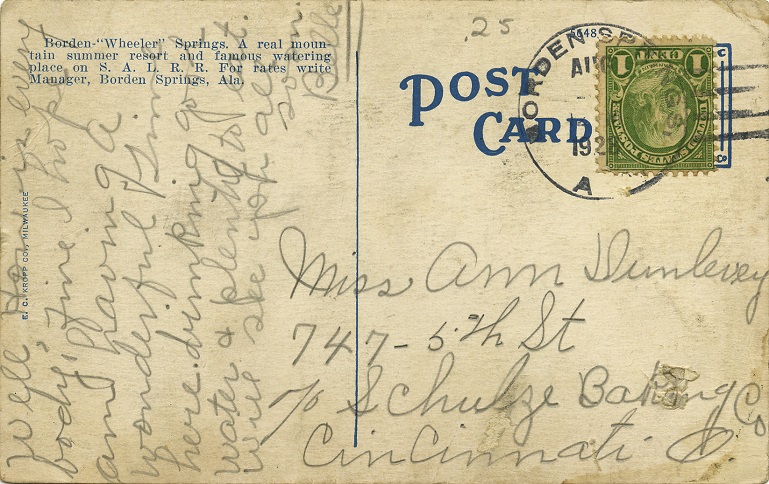 Borden-"Wheeler" Springs. A real moun-
tain summer resort and famous watering
place on S. A. L. R. R. For rates write
Manager, Borden Springs, Ala.
E. C. KROPP CO., MILWAUKEE
Well How is every
body, fine I hope
am having a
wonderful time
here. drinking good
water & plenty to eat.
will see you all
soon.
Belle
.25
POST
CARD
BORDEN SP
AUG
192
A
1 CENT 1
UNITED STATES POSTAGE
Miss Ann Dunlevey
747-5th St
c/o Schulze Baking Co
Cincinnati O